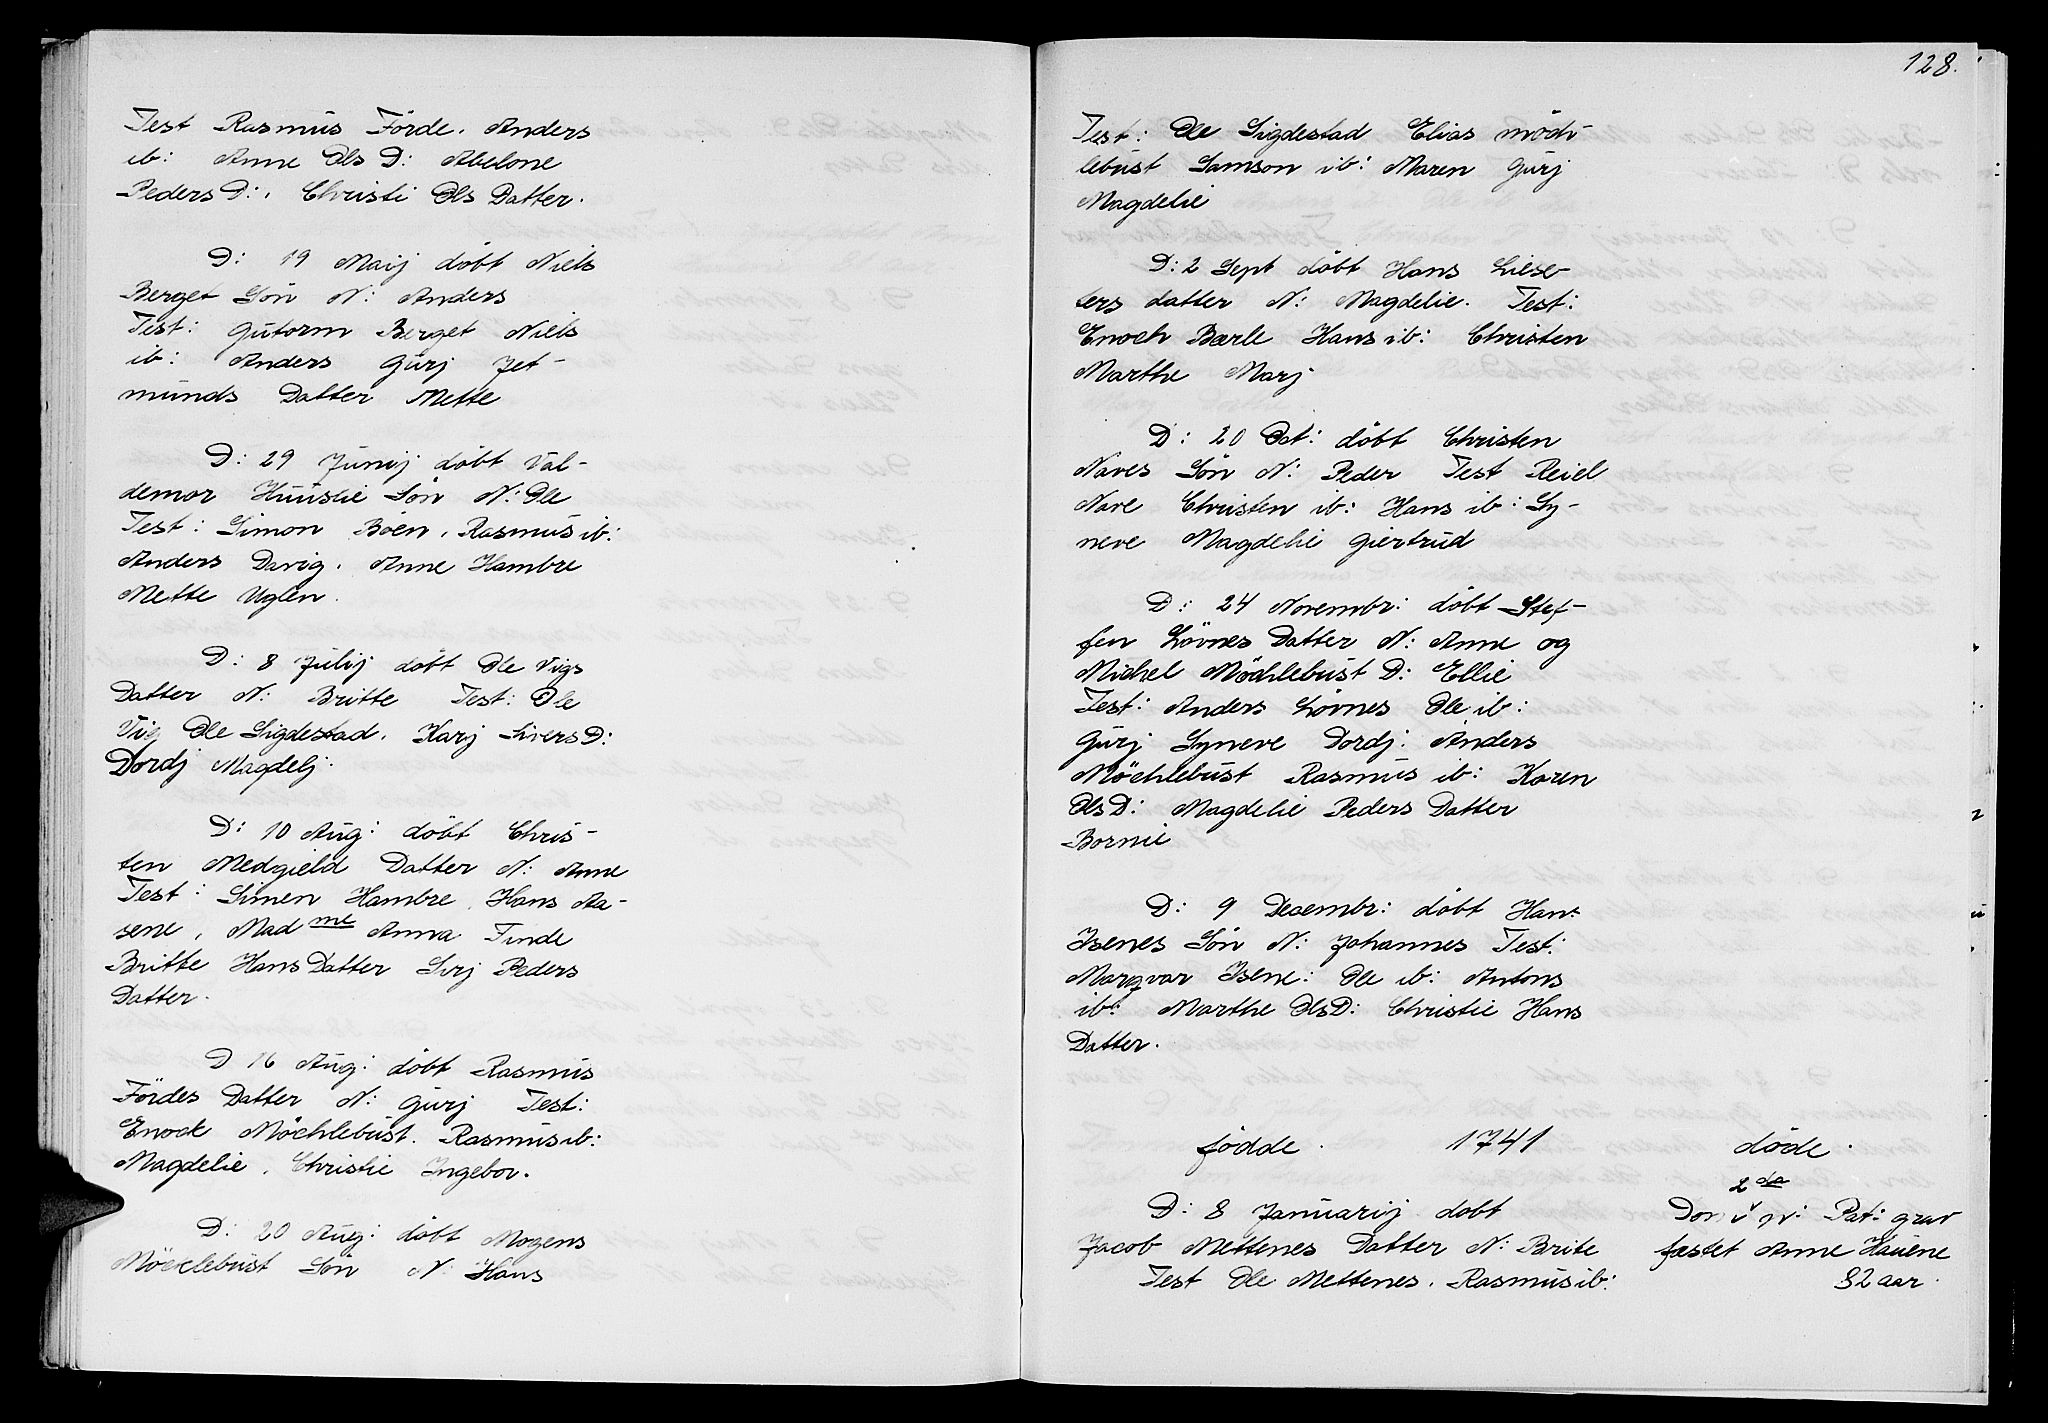 Test Rasmus Förde. Anders
ib: Anne Ols D: Abelone
Peders D:. Christi Ols Datter.
D: 19 Maij döbt Niels
Berget Sön N: Anders
Test: Gutorm Berget Niels
ib: Anders Gurj Jet-
munds Datter Mette
D: 29 Junij döbt Val-
demor Huuslie Sön N: Ole
Test: Simon Böen, Rasmus ib:
Anders Davig. Anne Hambre
Mette Uglen.
D: 8 Julij döbt Ole Vigs
Datter N: Britte Test: Ole
Vig Ole Sigdestad. Karj Sivers D:
Dordj Magdelj.
D: 10 Aug: döbt Chris-
ten Medgield Datter N: Anne
Test: Simen Hambre, Hans Aa-
sene, Mad me Anna Finde
Britte Hans Datter Sirj Peders
Datter.
D 16 Aug: döbt Rasmus
Fördes Datter N: Gurj Test:
Enock Möchlebust. Rasmus ib:
Magdelie. Christie Ingebor.
D: 20 Aug: döbt Mogens
Möcklebust Sön N: Hans
128.
Test: Ole Sigdestad Elias möch-
lebust Samson ib: Maren Gurj
Magdelie
D: 2 Sept döbt Hans Liese-
ters datter N: Magdelie. Test:
Enoch Barle Hans ib: Christen
Marthe Marj
D: 20 Oct: döbt Christen
Naves Sön N: Peder Test Reiel
Nave Christen ib: Hans ib: Sy-
neve Magdelie Giertrud
D: 24 Novembr: döbt Stef-
fen Lövnes Datter N: Anne og
Michel Möchlebust D: Ellie
Test: Anders Lövnes Ole ib:
Gurj Syneve Dordj: Anders
Möchlebust Rasmus ib: Karen
Ols D: Magdelie Peders Datter
Bornie
D: 9 Decembr: döbt Hans
Isenes Sön N: Johannes Test:
Marqvar Isene: Ole ib: Antons
ib: Marthe Ols D: Christie Hans
Datter.
födde. 1741 döde.
D: 8 Januarij döbt
Jacob Mettenes Datter N: Brite
Test Ole Mettenes. Rasmus ib:
2 da
Dom: v p: Pat: grav
fæstet Anne Hauene
82 aar.